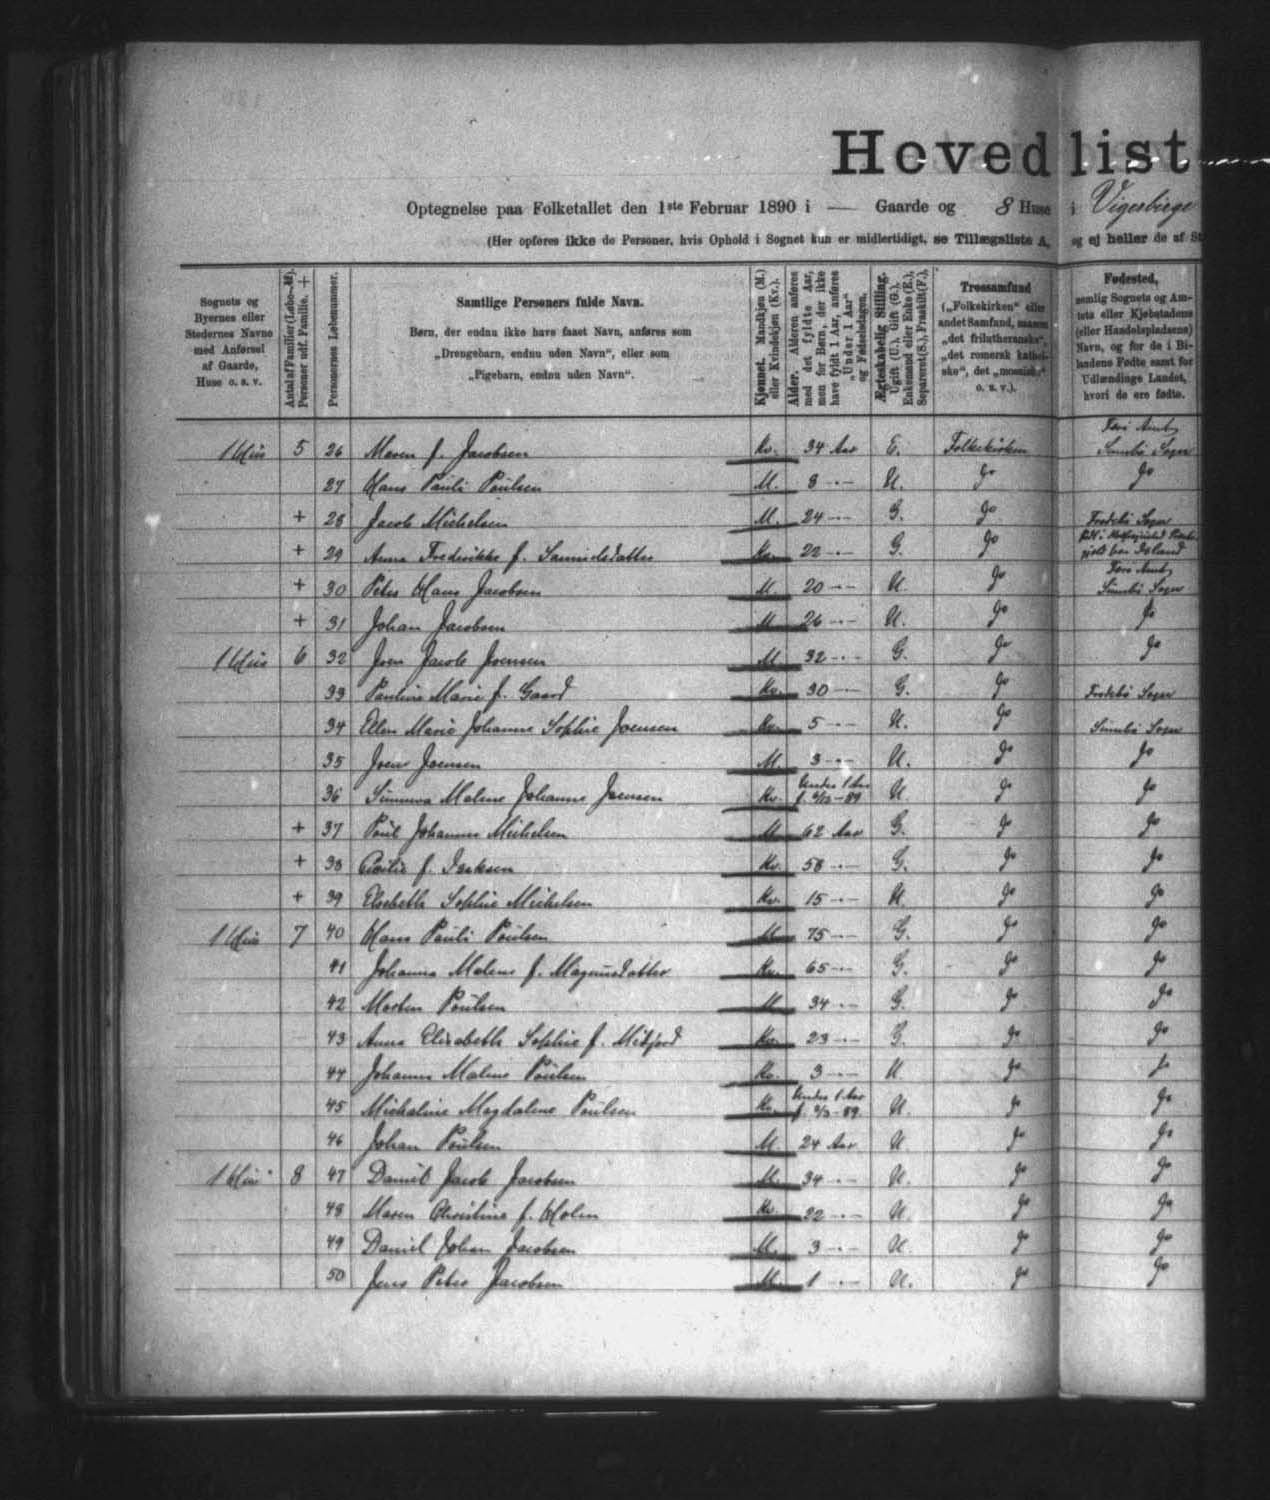 Hovedlist
Optegnelse paa Folketallet den 1ste Februar 1890 i — Gaarde og 8 Huse i Vigerbirge
(Her opføres ikke de Personer, hvis Ophold i Sognet kun er midlertidigt, se Tillægsliste A, og ej heller de af St
Sognets og Byernes eller Stedernes Navne med Anførsel af Gaarde, Huse o. s. v.
Antal af Familier (Løbe-№). Personer udf. Familie. +
Personernes Løbenummer.
Samtlige Personers fulde Navn.
Børn, der endnu ikke have faaet Navn, anføres som
„Drengebarn, endnu uden Navn", eller som
„Pigebarn, endnu uden Navn".
Kjønnet. Mandkjøn (M.) eller Kvindekjøn (Kv.).
Alder. Alderen anføres med det fyldte Aar, men for Børn, der ikke have fyldt 1 Aar, anføres „Under 1 Aar" og Fødselsdagen.
Ægteskabelig Stilling. Ugift (U.), Gift (G.), Enkemand eller Enke (E.), Separeret (S.), Fraskilt (F.).
Trossamfund („Folkekirken" eller andet Samfund, saasom „det frilutheranske", „det romersk katholske", det „mosaiske" o. s. v.).
Fødested, nemlig Sognets og Amtets eller Kjøbstadens (eller Handelspladsens) Navn, og for de i Bilandene Fødte samt for Udlændinge Landet, hvori de ere fødte.
1 Hus 5 26 Maren f. Jacobsen Kv. 34 Aar E. Folkekirken Færø Amt, Sumbø Sogn
27 Hans Pauli Poulsen M. 8 -·- U. do do
+ 28 Jacob Michelsen M. 24 -·- G. do Frodebø Sogn
+ 29 Anna Fredrikke f. Samuelsdatter Kv. 22 -·- G. do Island
+ 30 Peter Hans Jacobsen M. 20 -·- U. do Færø Amt, Sumbø Sogn
+ 31 Johan Jacobsen M. 26 -·- U. do do
1 Hus 6 32 Joen Jacob Joensen M. 32 -·- G. do do
33 Pauline Marie f. Gaard Kv. 30 -·- G. do Frodebø Sogn
34 Ellen Marie Johanne Sophie Joensen Kv. 5 -·- U. do Sumbø Sogn
35 Joen Joensen M. 3 -·- U. do do
36 Sunneva Malene Johanne Joensen Kv. Under 1 Aar f. -89 U do do
+ 37 Poul Johannes Michelsen M. 62 Aar G. do do
+ 38 Cecilie f. Isaksen Kv. 58 -·- G. do do
+ 39 Elsebeth Sophie Michelsen Kv. 15 -·- U. do do
1 Hus 7 40 Hans Pauli Poulsen M. 75 -·- G. do do
41 Johanna Malene f. Magnusdatter Kv. 65 -·- G. do do
42 Morten Poulsen M. 34 -·- G. do do
43 Anna Elisabeth Sophie f. Mitfjord Kv. 23 -·- G. do do
44 Johanne Malene Poulsen Kv. 3 -·- U. do do
45 Michaline Magdalene Poulsen Kv. Under 1 Aar f. -89 U. do do
46 Johan Poulsen M. 24 Aar U do do
1 Hus 8 47 Daniel Jacob Jacobsen M. 34 -·- U. do do
48 Maren Christine f. Holm Kv. 22 -·- U. do do
49 Daniel Johan Jacobsen M. 3 -·- U. do do
50 Jens Peter Jacobsen M. 1 -·- U. do do